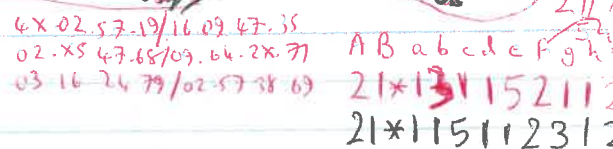 4x.02.57.19/16.09.47.35
02.x5 47.68/09.04.2x.71
03 16 24 79/02.57 38 69
A B a b c d e F g h
21*13 1 1 5 2 1 1 2
21*1 1 5 1 1 2 3 1 2